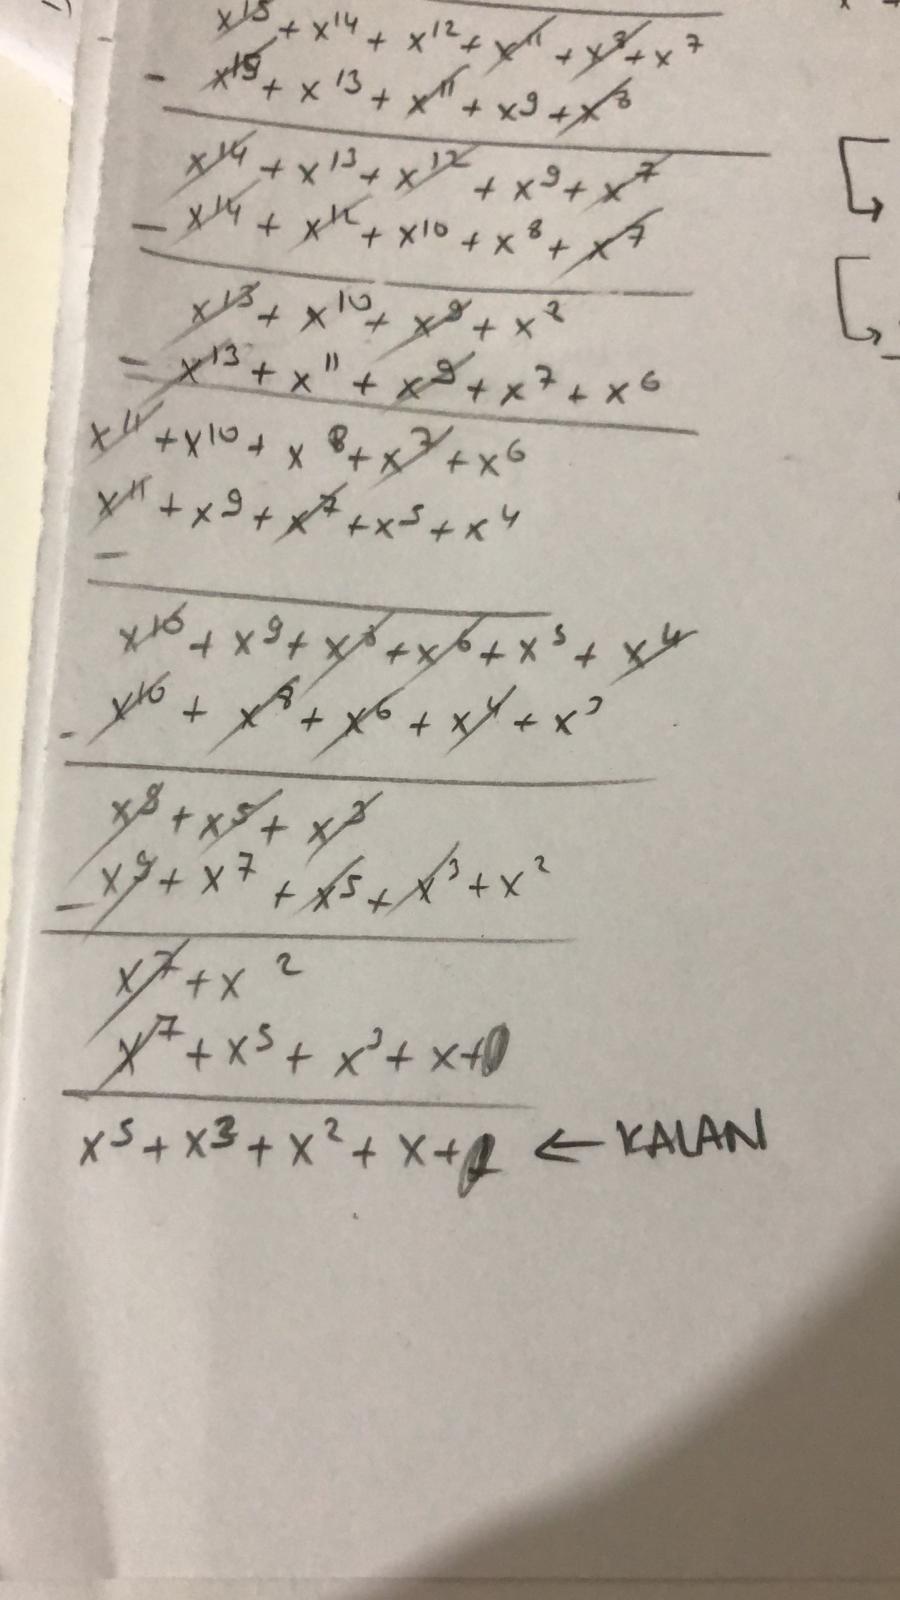 x¹⁵ + x¹⁴ + x¹² + x¹¹ + x⁸ + x⁷
- x¹⁵ + x¹³ + x¹¹ + x⁹ + x⁸
x¹⁴ + x¹³ + x¹² + x⁹ + x⁷
- x¹⁴ + x¹² + x¹⁰ + x⁸ + x⁷
x¹³ + x¹⁰ + x⁹ + x⁸
- x¹³ + x¹¹ + x⁹ + x⁷ + x⁶
x¹¹ + x¹⁰ + x⁸ + x⁷ + x⁶
x¹¹ + x⁹ + x⁷ + x⁵ + x⁴
-
x¹⁰ + x⁹ + x⁸ + x⁶ + x⁵ + x⁴
- x¹⁰ + x⁸ + x⁶ + x⁴ + x³
x⁹ + x⁵ + x³
- x⁹ + x⁷ + x⁵ + x³ + x²
x⁷ + x²
x⁷ + x⁵ + x³ + x +
x⁵ + x³ + x² + x + ← KALAN